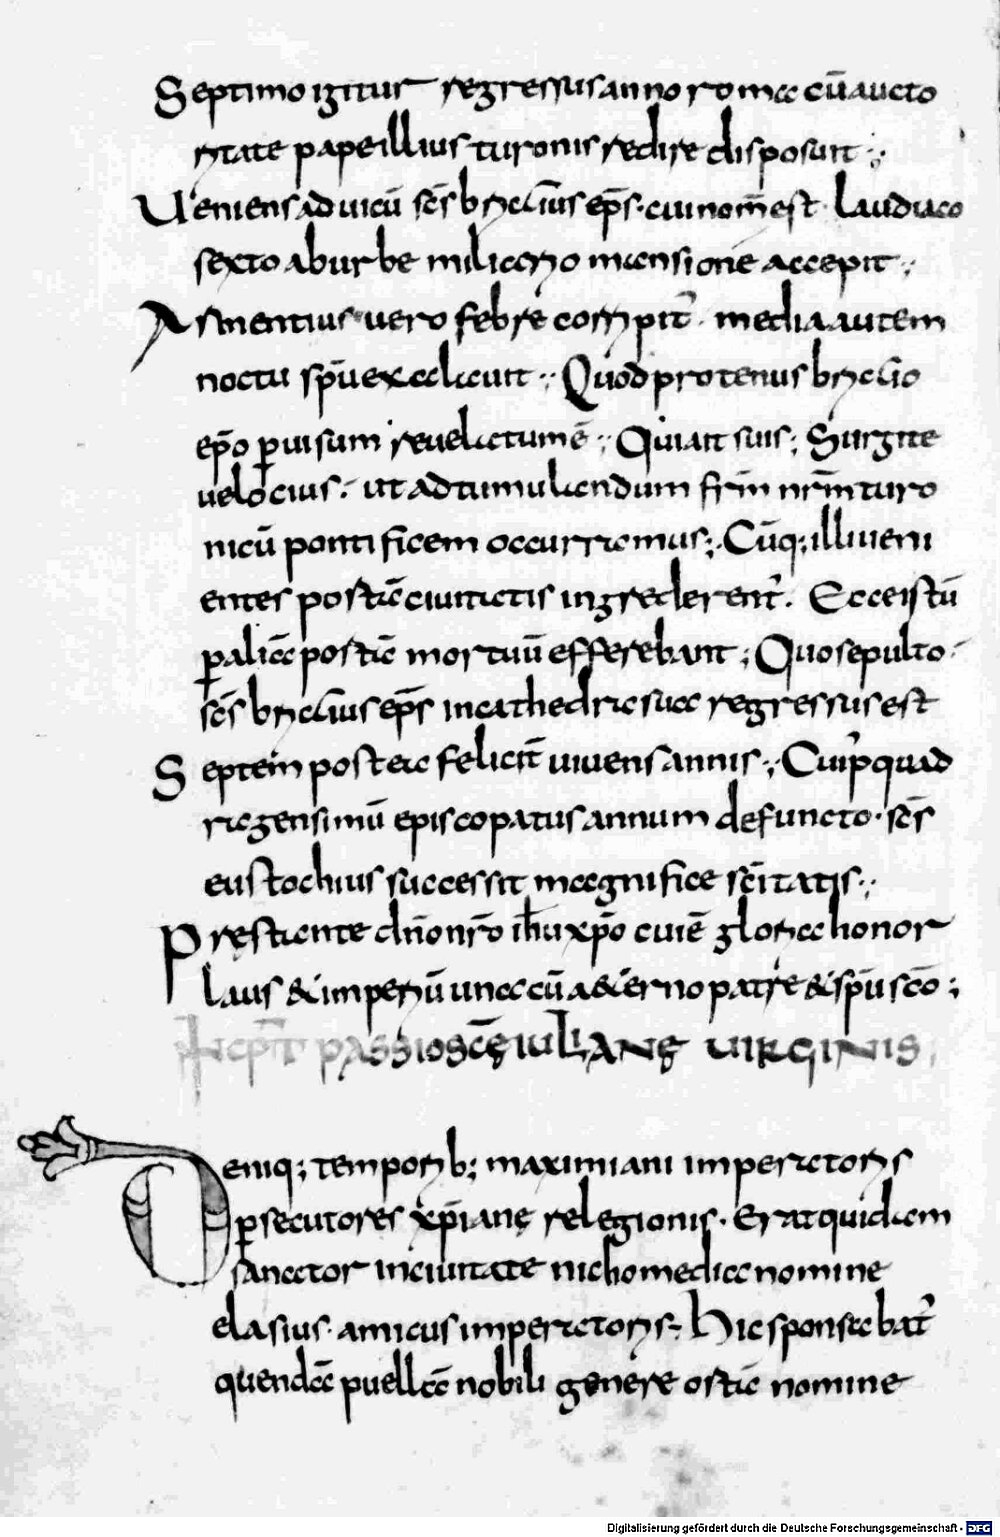 Septimo igitur regressus anno roma cū aucto
ritate pape illius turonis redire disposuit ·,·
Ueniens ad uicū scs̄ bricciūs ep̄s · cui nom̄ est · laudiaco
sexto ab urbe miliario mansione accepit ·,
Armentius uero febre corripit̄ · media autem
noctu sp̄u exalauit ·,· Quod protenus briccio
ep̄o ꝑ uisum reuelatum ē ·,· Qui ait suis ; Surgite
uelocius · ut ad tumulandum fr̄m nr̄m turo
nicū pontificem occurramus ;· Cūq; illi ueni
entes portā ciuitatis ingrederent̄ · Ecce istū
ꝑ aliā portā mortuū efferebant ; Quo sepulto ·
scs̄ briccius ep̄s in cathedra sua regressus est
Septem postea felicit̄ uiuens annis ·,· Cui p̄ quad
ragensimū episcopatus annum defuncto · scs̄
eustochius successit magnifice sc̄itatis ·,·
Prestante dn̄o nr̄o ih̄u xp̄o cui ē gloria honor
laus & imperiū una cū a&erno patre & sp̄u sc̄o ;
Incp̄t passio sc̄ę iulianę uirginis
Deniq; temporib; maximiani imperatoris
ꝑsecutores xp̄ianę relegionis · Erat quidam
sanator in ciuitate nichomedia nomine
elasius · amicus imperatoris · Hic sponsabat̄
quendā puellā nobili genere ortā nomine
Digitalisierung gefördert durch die Deutsche Forschungsgemeinschaft - DFG